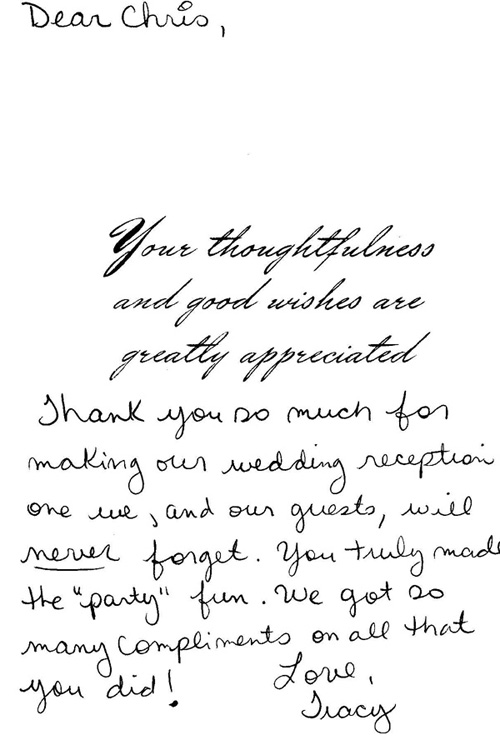 Dear Chris,
Your thoughtfulness
and good wishes are
greatly appreciated
Thank you so much for
making our wedding reception
one we, and our guests, will
never forget. You truly made
the "party" fun. We got so
many compliments on all that
you did!
Love,
Tracy